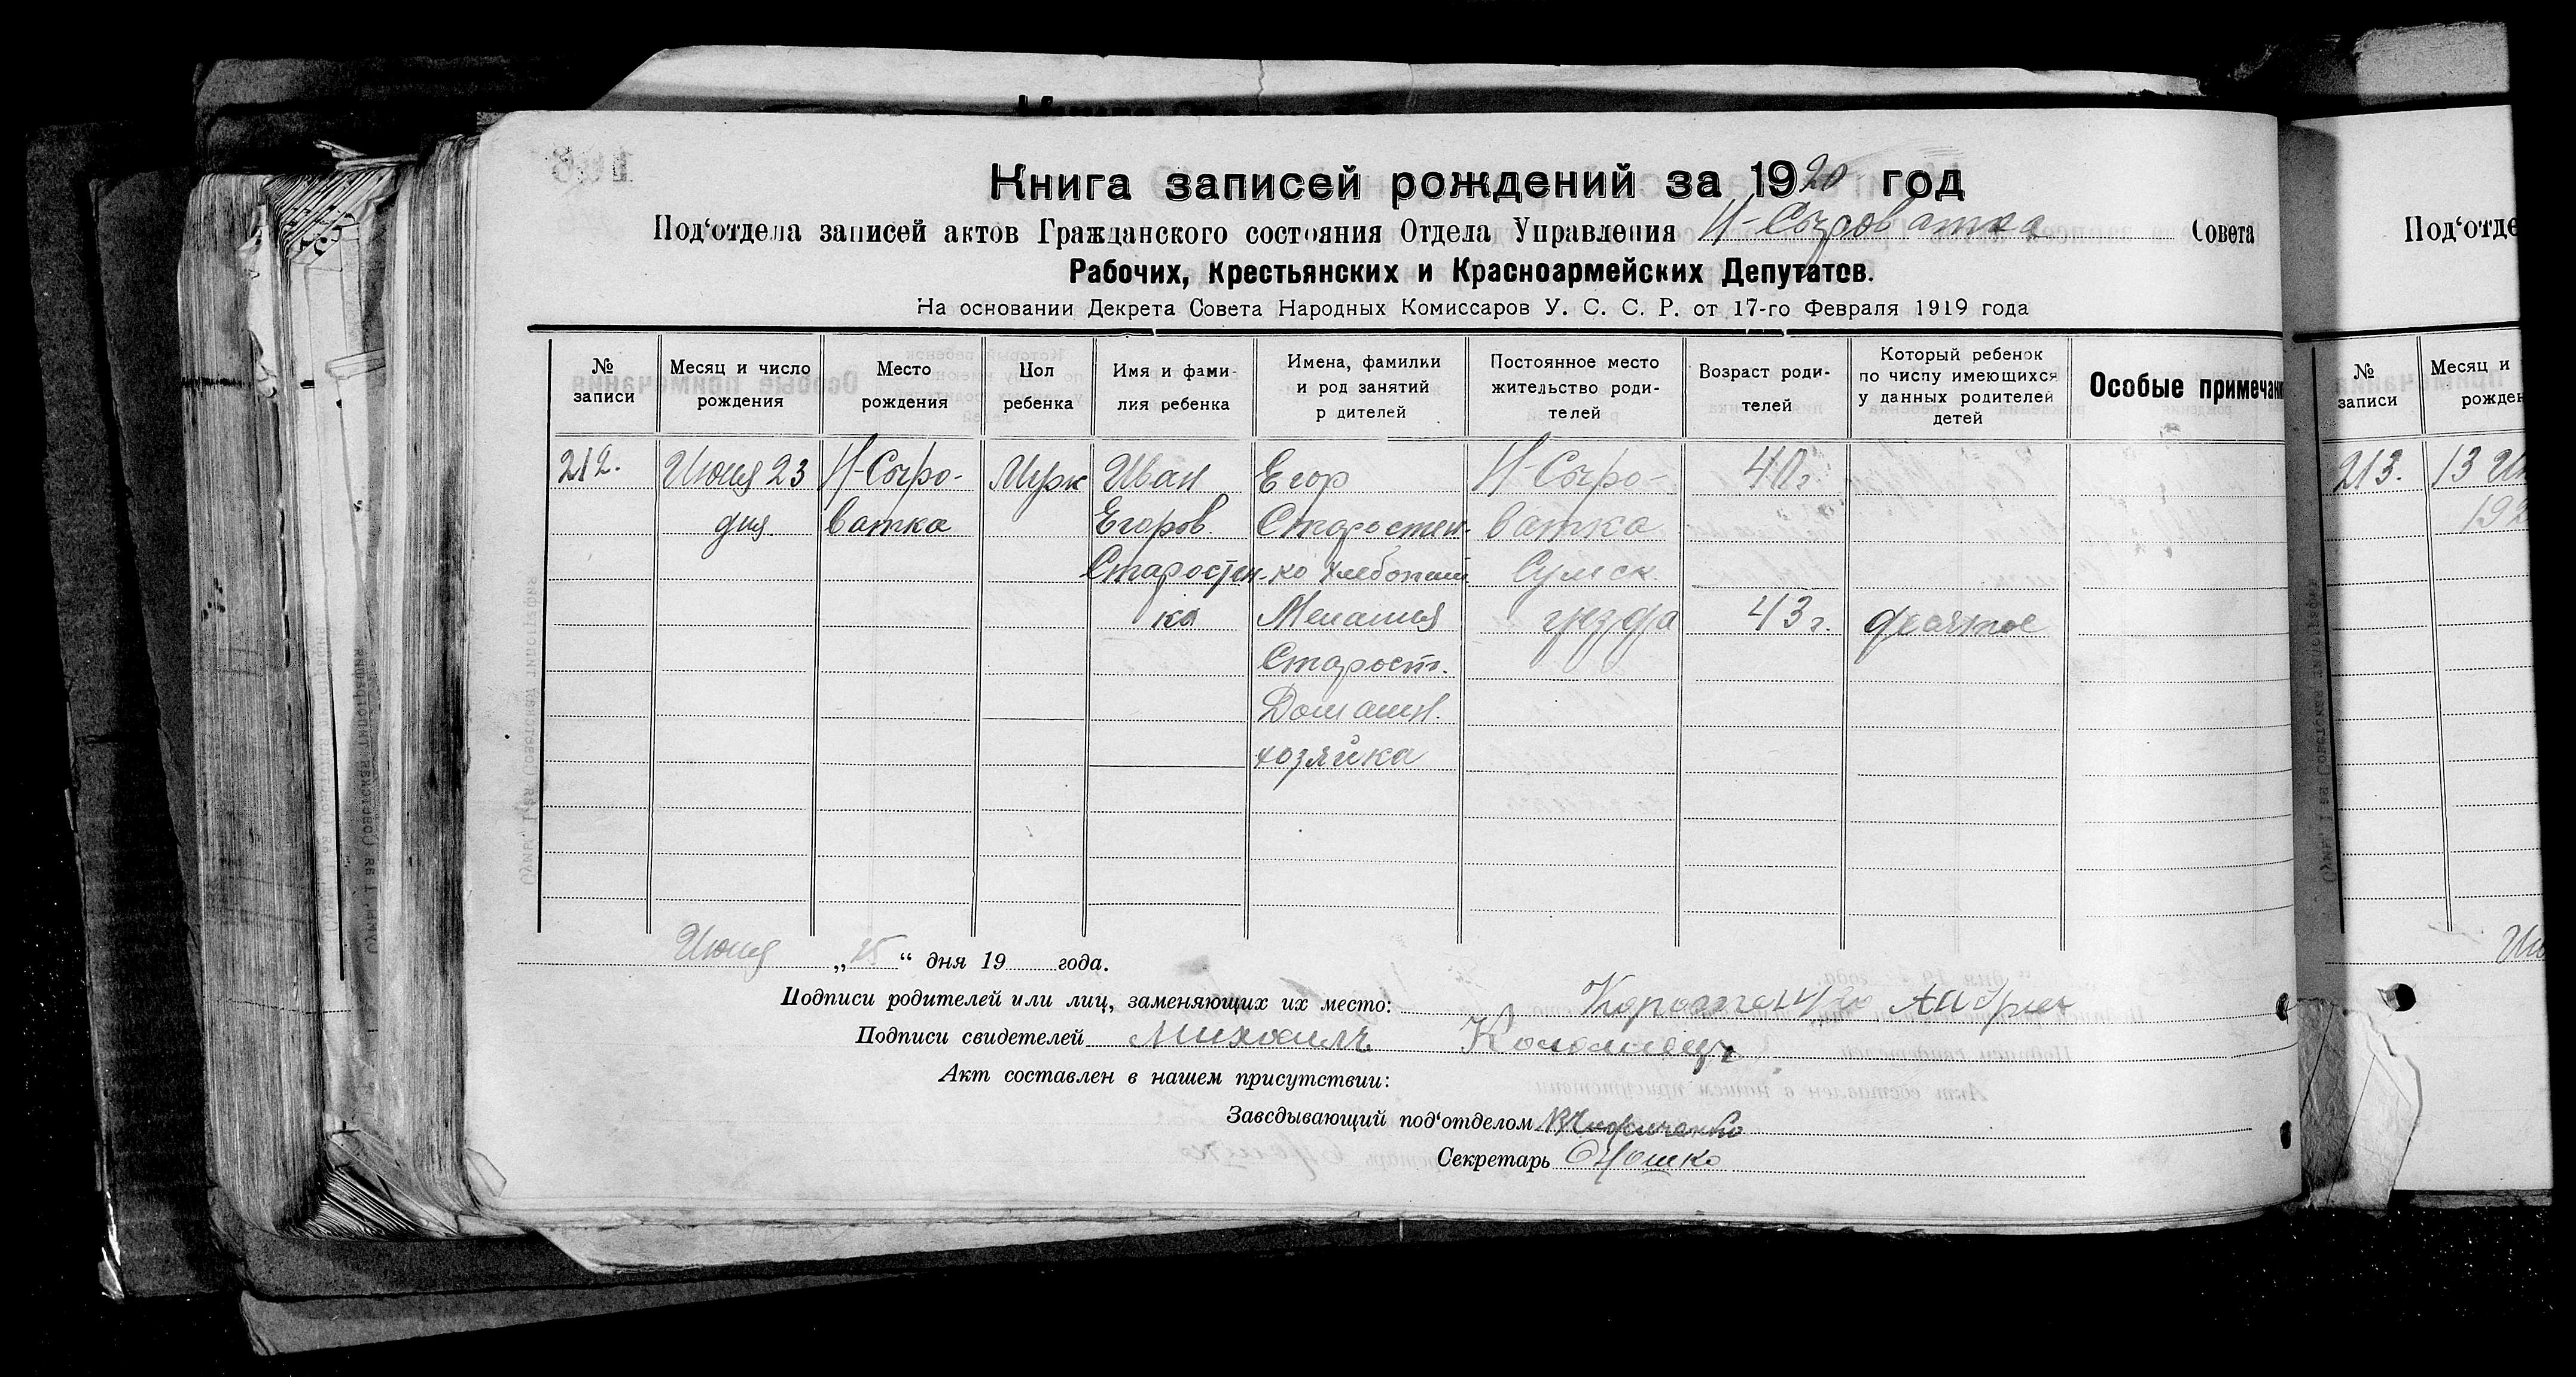 Книга записей рождений за 1920 год
Под‘отдела записей актов Гражданского состояния Отдела Управления Н-Сыроватка Совета
Рабочих, Крестьянских и Красноармейских Депутатов.
На основании Декрета Совета Народных Комиссаров У. С. С. Р. от 17-го Февраля 1919 года
№ записи
Месяц и число рождения
Место рождения
Пол ребенка
Имя и фами-
лия ребенка
Имена, фамилии
и род занятий
р дителей
Постоянное место
жительство роди-
телей
Возраст роди-
телей
Который ребенок
по числу имеющихся
у данных родителей
детей
Особые примечан
212. Июня 23 Н-Сыро- Мужк Иван Егор Н-Сыро- 40 г
дня ватка Егоров. Старостен- ватка
Старостен- ко хлебопаш Сумск.
ка Мелания уезда 43 г. десятое
Старост.
Домашн.
хозяйка
Июня „25“ дня 19 года.
Подписи родителей или лиц, заменяющих их место: Андрей
Подписи свидетелей Михаилъ Коломиецъ
Акт составлен в нашем присутствии:
Заведывающий под‘отделом
Секретарь
Под‘отде
№ записи
Месяц и
рожден
213. 13 Ию
192
Ию